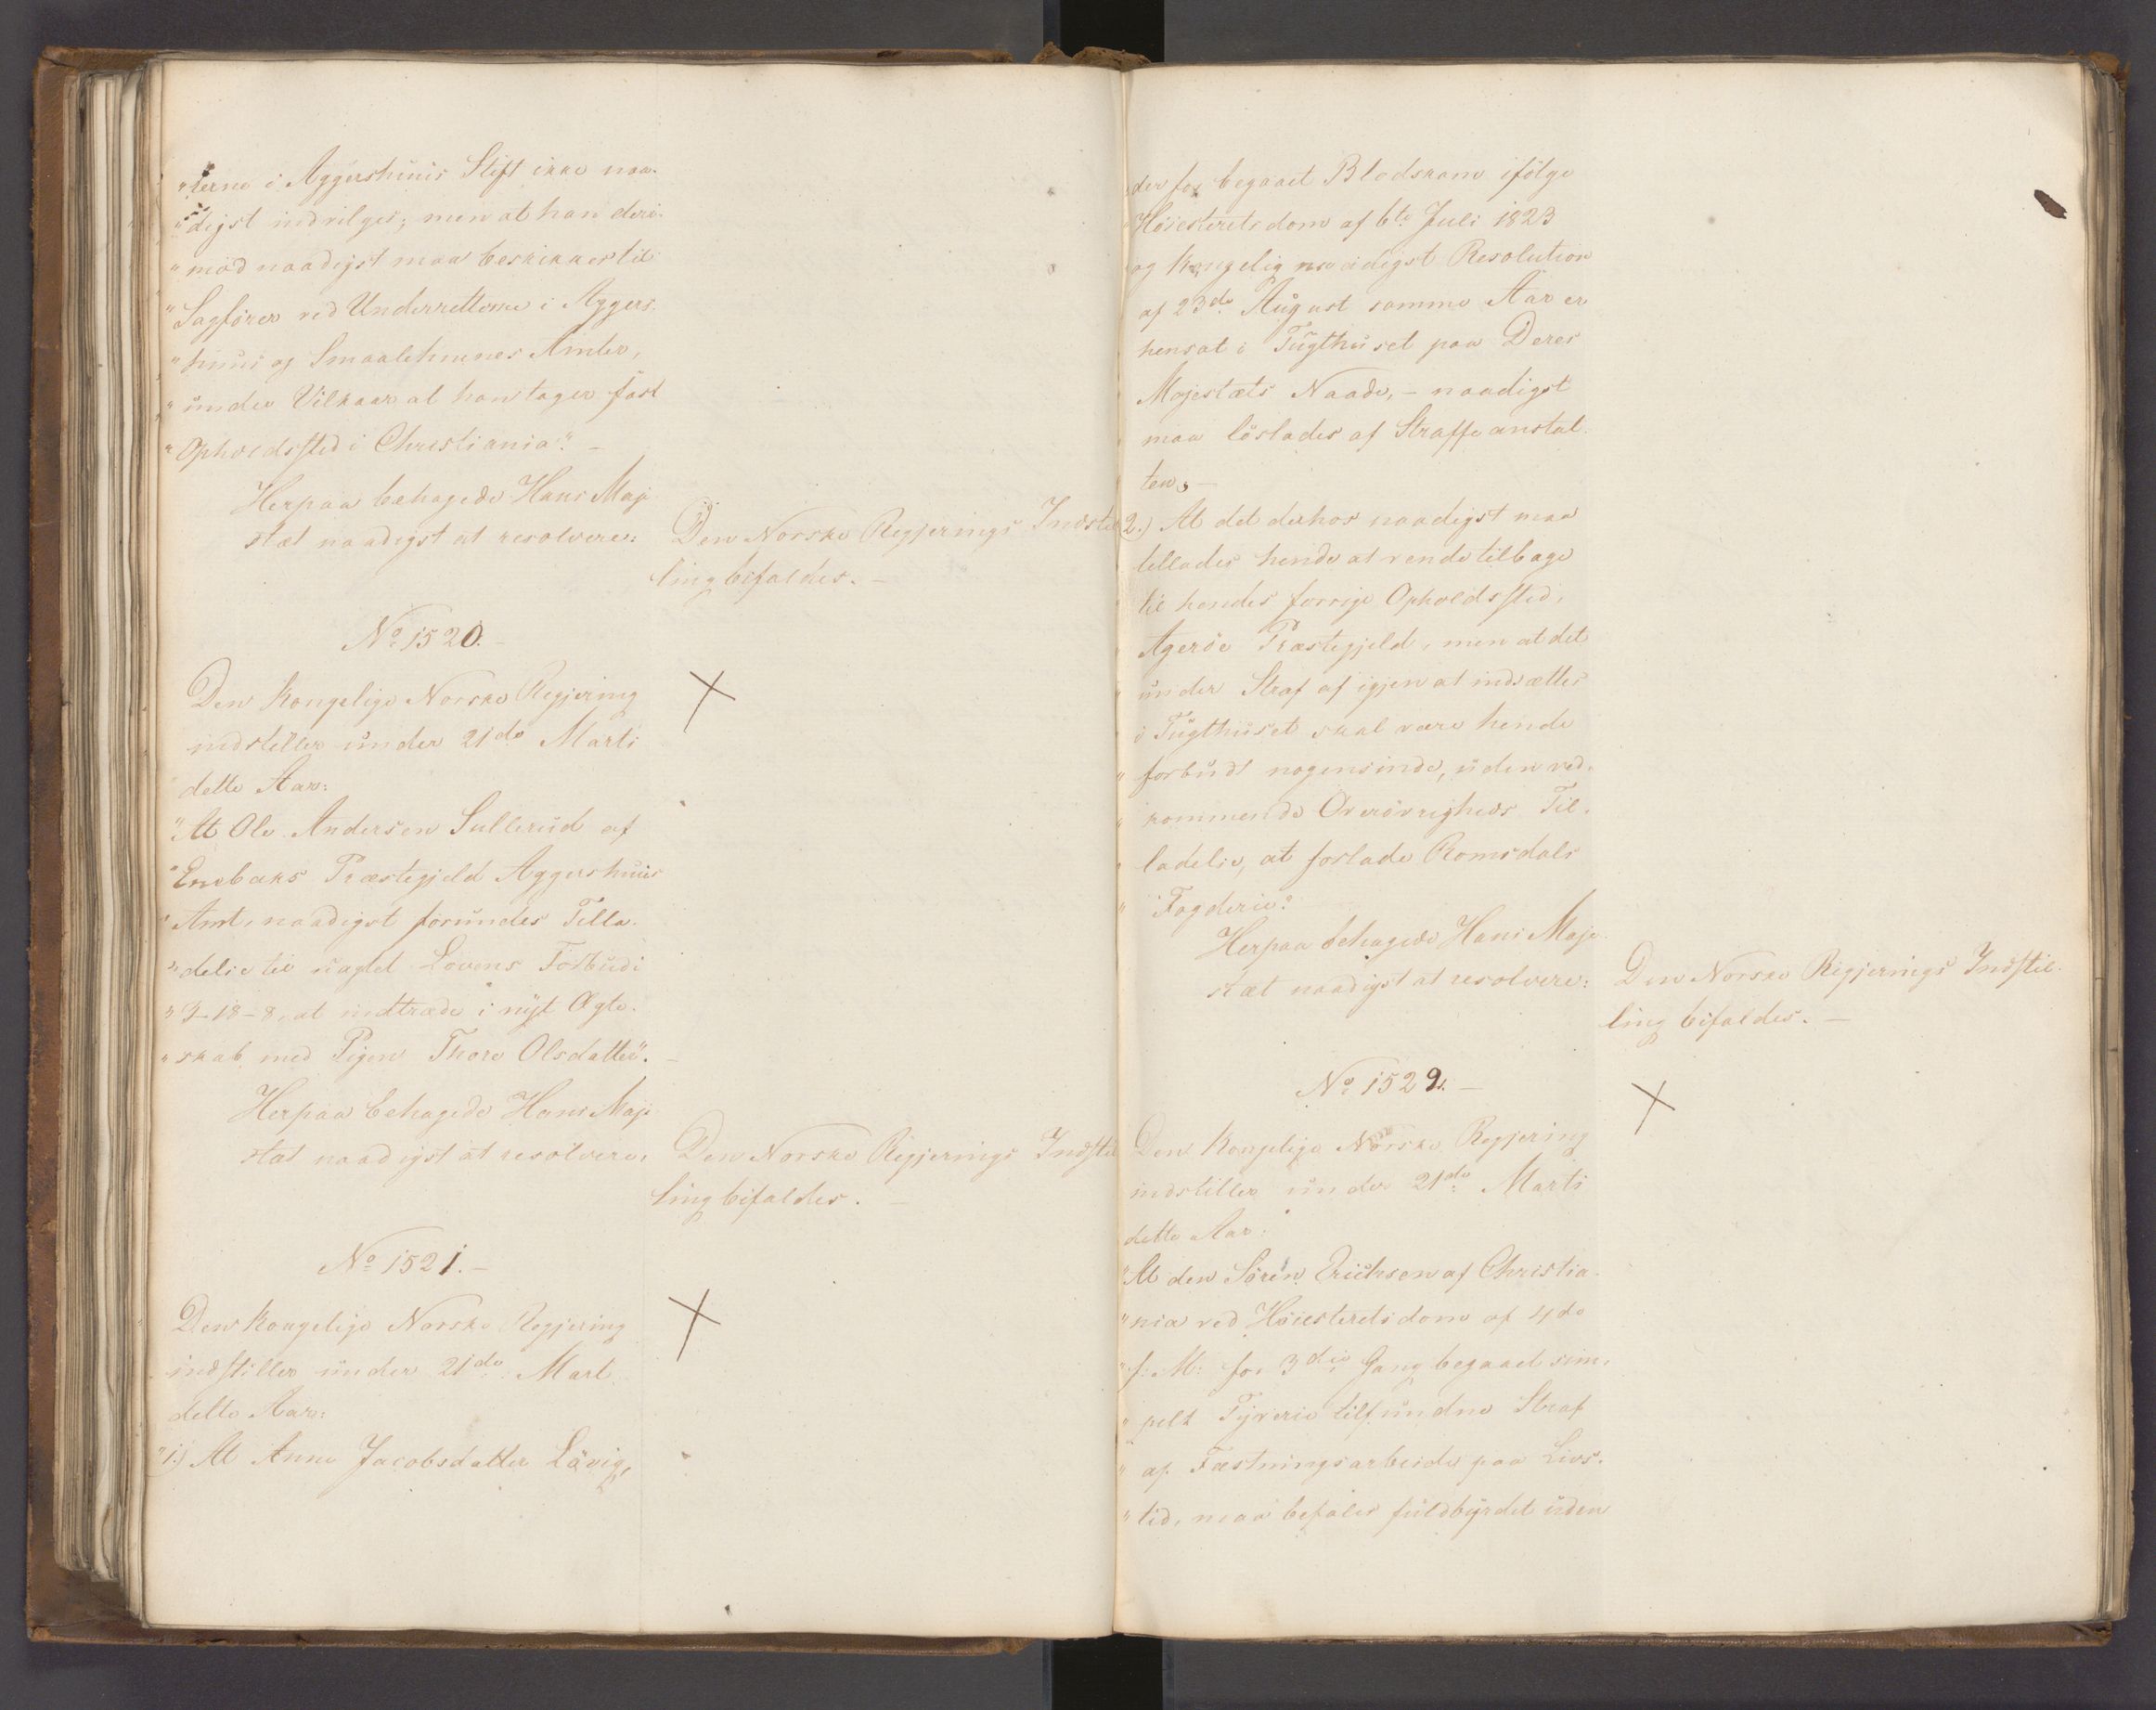 "terne i Aggershuus Stift ikke naa-
"digst indvilges; men at han deri-
"mod naadigst maa beskikkes til
"Sagfører ved Underretterne i Aggers-
"huus og Smaalehnenes Amter,
"under Vilkaar at han tager fast
"Opholdssted i Christiania". -
Herpaa behagede Hans Maje-
stæt naadigst at resolvere:
Den Norske Regjerings Indstil-
ling bifaldes. -
No 1520. -
Den Kongelige Norske Regjering
indstiller under 21de Marti
dette Aar:
"At Ole Andersen Sullerud af
"Enebaks Præstegjeld Aggershuus
"Amt, naadigst forundes Tilla-
"delse til uagtet Lovens Forbud i
"3-18-8, at indtræde i nyt Ægte-
"skab med Pigen Thore Olsdatter". -
Herpaa behagede Hans Maje-
stæt naadigst at resolvere:
Den Norske Regjerings Indstil-
ling bifaldes. -
No 1521. -
Den Kongelige Norske Regjering
indstiller under 21de Marti
dette Aar:
"1.) At Anne Jacobsdatter Lövig,
"der for begaaet Blodskam ifølge
"Höiesteretsdom af 6te Juli 1823
og Kongelig naadigst Resolution
af 23de August samme Aar er
hensat i Tugthuset paa Deres
Majestæts Naade, - naadigst
maa löslades af Straffeanstal-
ten. -
2.) At det derhos naadigst maa
tillades hende at vende tilbage
til hendes forrige Opholdssted,
Ageröe Præstegjeld, men at det
under Straf af igjen at indsættes
i Tugthuset skal være hende
" forbudt nogensinde, uden ved-
" kommende Overövrigheds Til-
" ladelse, at forlade Romsdals
" Fogderie".
Herpaa behagede Hans Maje-
stæt naadigst at resolvere:
Den Norske Regjerings Indstil-
ling bifaldes. -
No 1522. -
Den Kongelige Norske Regjering
indstiller under 21de Marti
dette Aar:
"At den Sören Erichsen af Christia-
"nia ved Höiesteretsdom af 4de
"f: M: for 3die Gang begaaet sim-
" pelt Tyverie tilfundne Straf
" af Fæstningsarbeide paa Livs-
" tid, maa befales fuldbyrdet uden